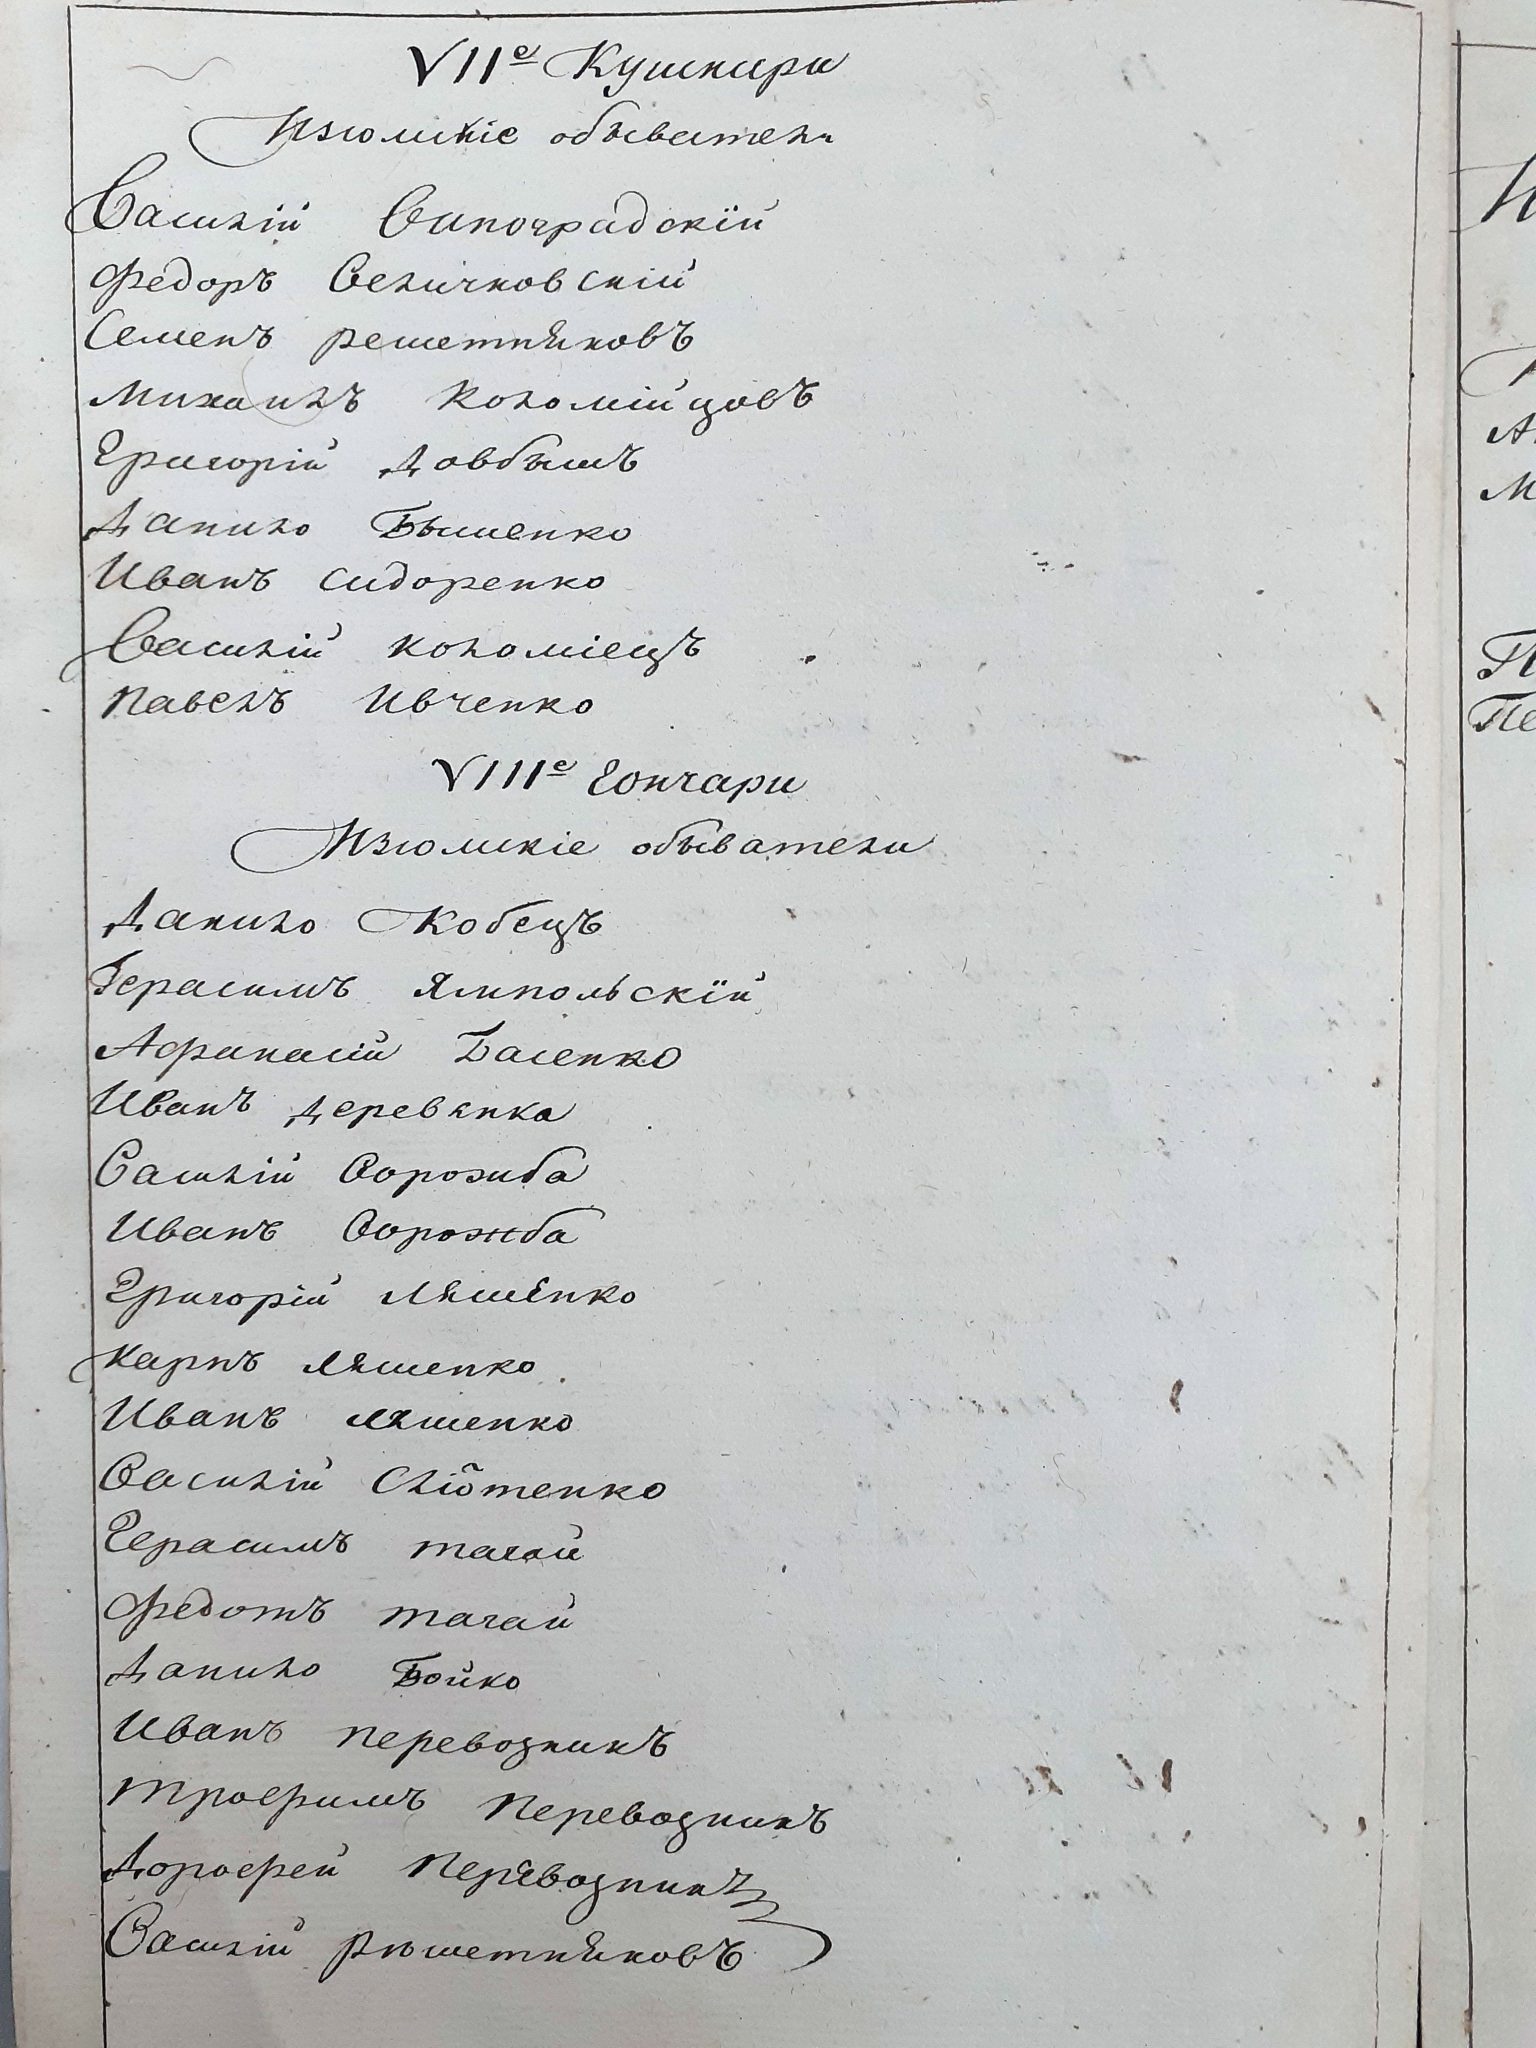 VIIе Кушнири
Изюмскіе обыватели
Василій Виноградскій
Федоръ Величковскій
Семенъ решетняковъ
Михаилъ Коломійцовъ
Григорій Довбышъ
Данило Бышенко
Иванъ Сидоренко
Василій коломіецъ
Павелъ Ивченко
VIIIе Гончари
Изюмскіе обыватели
Данило Кобецъ
Герасимъ Ямпольскій
Афанасій Басенко
Иванъ Деревянка
Василій Ворожба
Иванъ Ворожба
Григорій Ляшенко
Карпъ Ляшенко
Иванъ Ляшенко
Василій
Герасимъ тагай
Федотъ тагай
Данило Бойко
Иванъ Перевозникъ
Трофимъ Перевозникъ
Дорофей Перевозникъ
Василій Решетняковъ
И
А
М
П
Пе